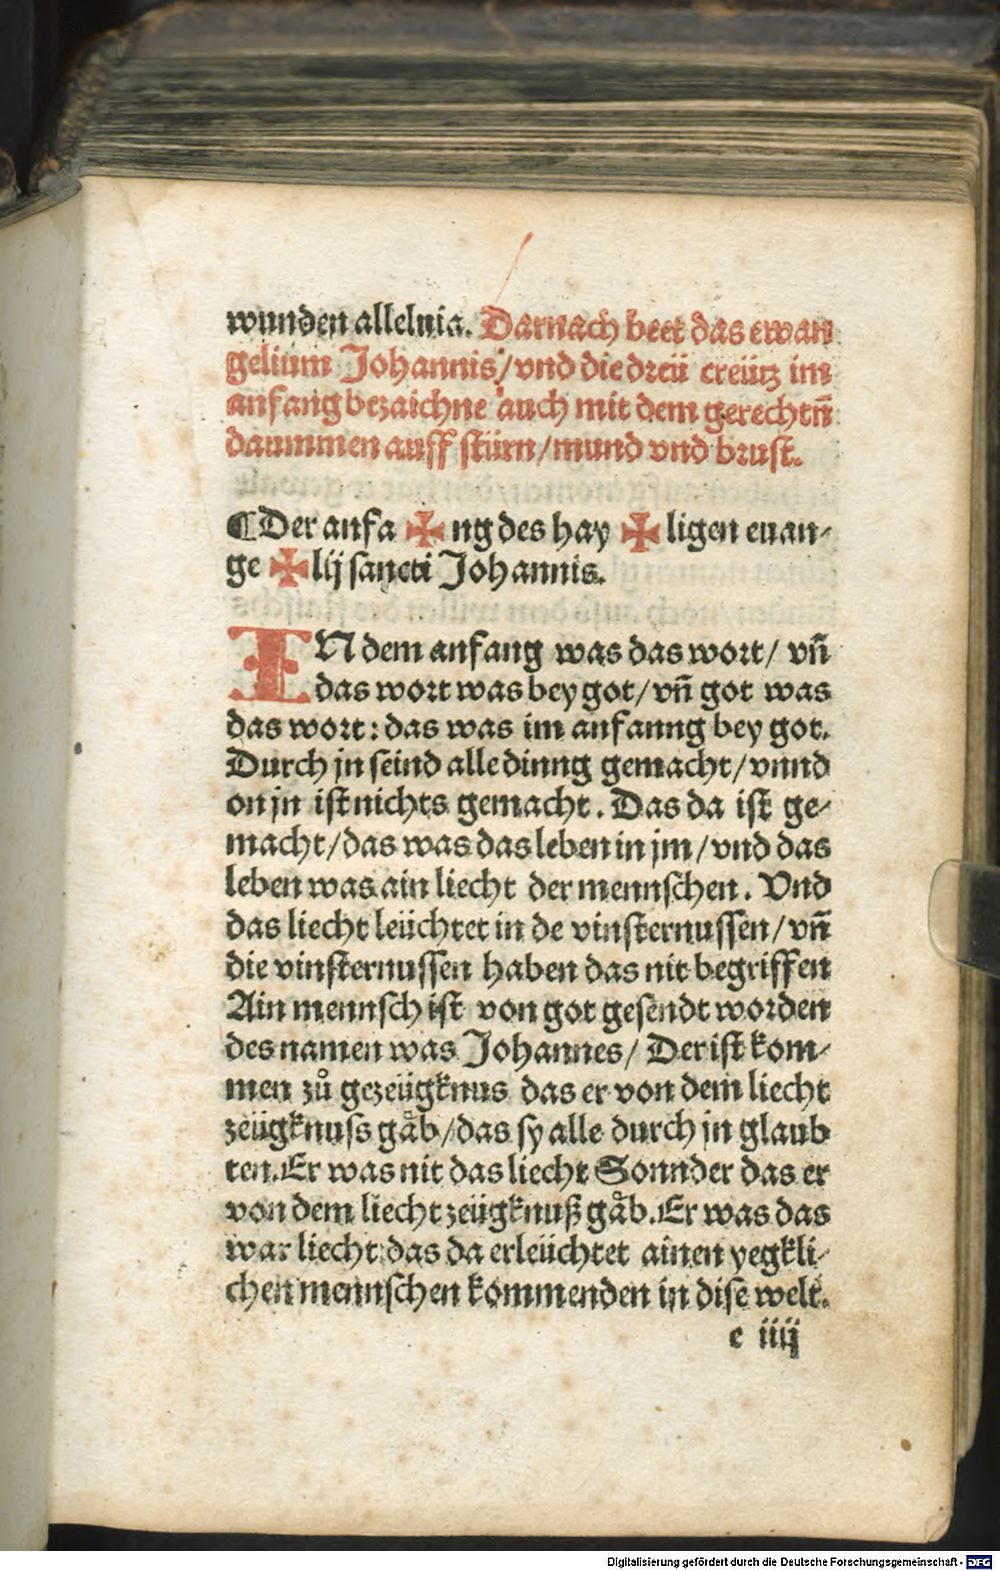 wunden alleluia. Darnach beet das ewan
gelium Johannis/ vnd die dreü creütz im
anfang bezaichne auch mit dem gerechtñ
daummen auff stürn/ mund vnd brust.
¶ Der anfa ✠ ng des hay ✠ ligen euan-
ge ✠ lij sancti Johannis.
IN dem anfang was das wort/ vñ
das wort was bey got/ vñ got was
das wort: das was im anfanng bey got.
Durch jn seind alle dinng gemacht/ vnnd
on jn ist nichts gemacht. Das da ist ge-
macht/ das was das leben in jm/ vnd das
leben was ain liecht der mennschen. Vnd
das liecht leüchtet in de vinsternussen/ vñ
die vinsternussen haben das nit begriffen
Ain mennsch ist von got gesendt worden
des namen was Johannes/ Der ist kom-
men zů gezeügknus das er von dem liecht
zeügknuss gåb/ das sy alle durch jn glaub
ten. Er was nit das liecht Sonnder das er
von dem liecht zeügknuß gåb. Er was das
war liecht das da erleüchtet ainen yegkli-
chen mennschen kommenden in dise welt.
e iiij
Digitalisierung gefördert durch die Deutsche Forschungsgemeinschaft - DFG